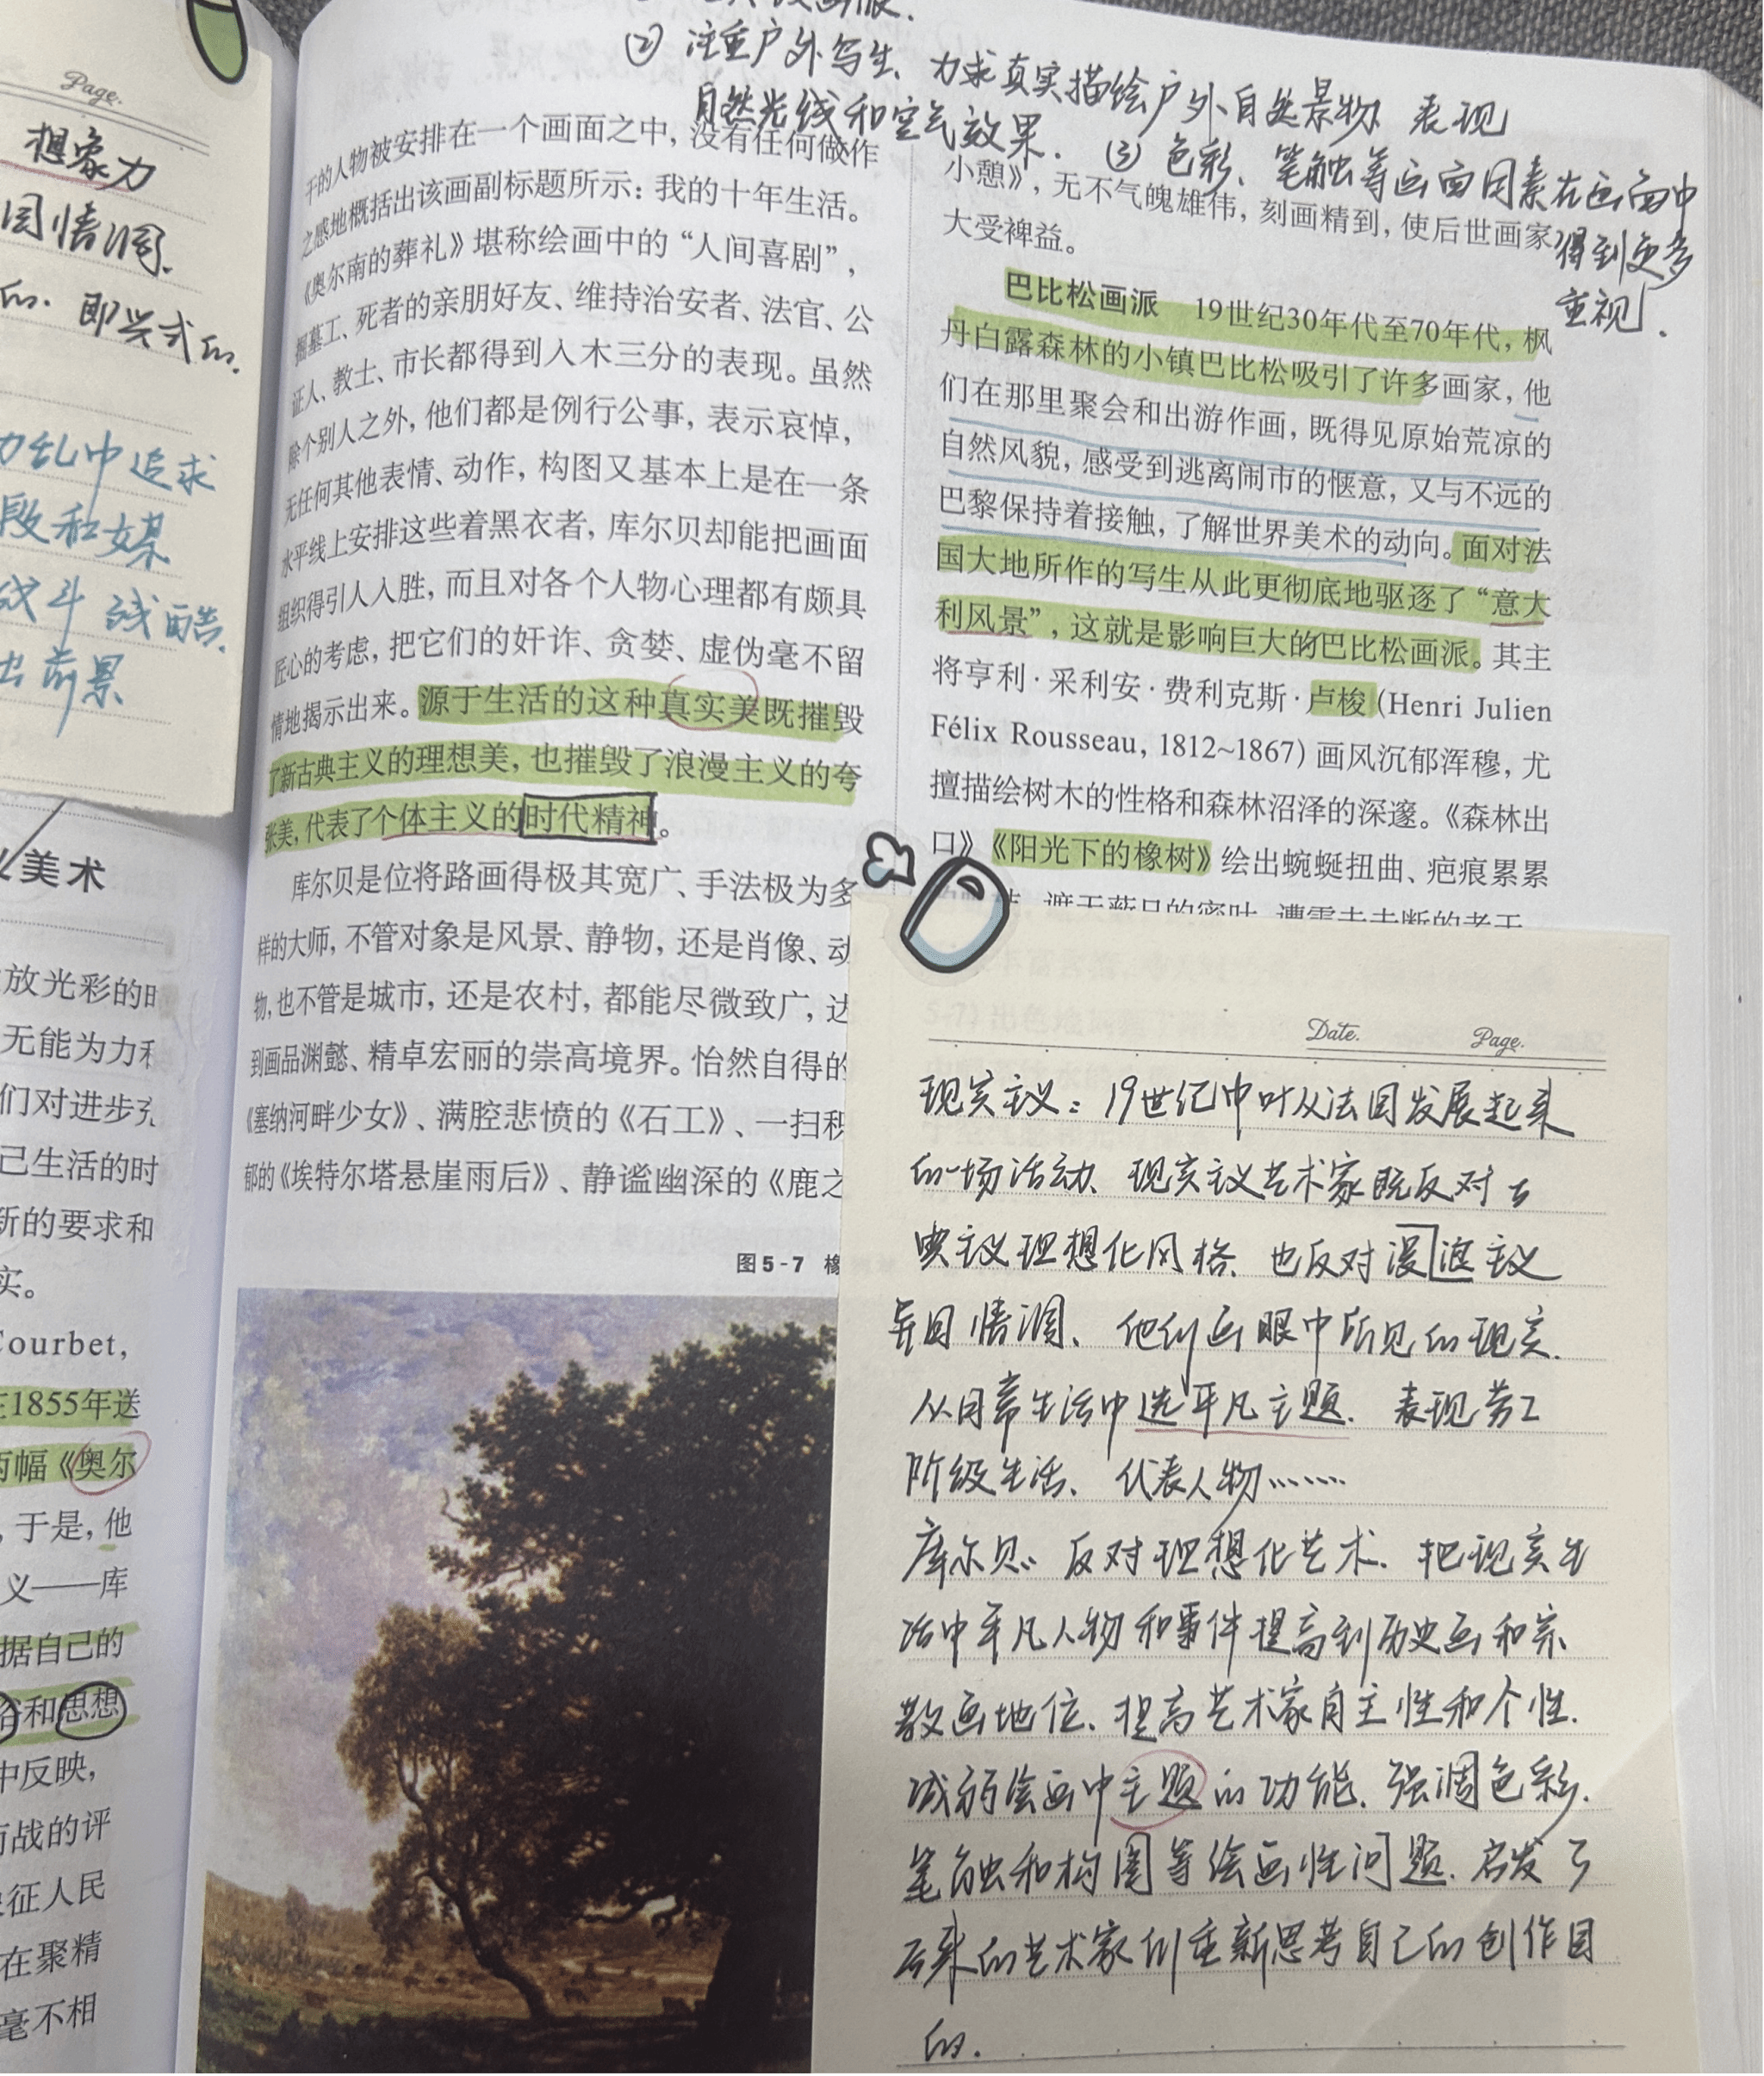 Page.
想象力
国情调.
的. 即兴式的.
乱中追求
段和媒
战斗 残酷.
出前景
美术
放光彩的时
无能为力和
们对进步
己生活的时
新的要求和
实。
Courbet,
在1855年送
两幅《奥尔
，于是，他
义——库
据自己的
俗和思想
中反映，
有战的评
象征人民
在聚精
毫不相
② 注重户外写生、力求真实描绘户外自然景物 表现
自然光线和空气效果. ③ 色彩、笔触等画面因素在画面中
得到更多
重视.
干的人物被安排在一个画面之中，没有任何做作
之感地概括出该画副标题所示：我的十年生活。
《奥尔南的葬礼》堪称绘画中的“人间喜剧”，
掘墓工、死者的亲朋好友、维持治安者、法官、公
证人、教士、市长都得到入木三分的表现。虽然
除个别人之外，他们都是例行公事，表示哀悼，
无任何其他表情、动作，构图又基本上是在一条
水平线上安排这些着黑衣者，库尔贝却能把画面
组织得引人入胜，而且对各个人物心理都有颇具
匠心的考虑，把它们的奸诈、贪婪、虚伪毫不留
情地揭示出来。源于生活的这种真实美既摧毁
了新古典主义的理想美，也摧毁了浪漫主义的夸
张美，代表了个体主义的时代精神。
库尔贝是位将路画得极其宽广、手法极为多
样的大师，不管对象是风景、静物，还是肖像、动
物，也不管是城市，还是农村，都能尽微致广，达
到画品渊懿、精卓宏丽的崇高境界。怡然自得的
《塞纳河畔少女》、满腔悲愤的《石工》、一扫积
郁的《埃特尔塔悬崖雨后》、静谧幽深的《鹿之
图5-7 橡
小憩》，无不气魄雄伟，刻画精到，使后世画家
大受裨益。
巴比松画派 19世纪30年代至70年代，枫
丹白露森林的小镇巴比松吸引了许多画家，他
们在那里聚会和出游作画，既得见原始荒凉的
自然风貌，感受到逃离闹市的惬意，又与不远的
巴黎保持着接触，了解世界美术的动向。面对法
国大地所作的写生从此更彻底地驱逐了“意大
利风景”，这就是影响巨大的巴比松画派。其主
将亨利·采利安·费利克斯·卢梭(Henri Julien
Félix Rousseau, 1812~1867)画风沉郁浑穆，尤
擅描绘树木的性格和森林沼泽的深邃。《森林出
口》《阳光下的橡树》绘出蜿蜒扭曲、疤痕累累
Date. Page.
现实主义：19世纪中叶从法国发展起来
的一场活动、现实主义艺术家既反对古
典主义理想化风格、也反对浪漫主义
异国情调、他们画眼中所见的现实.
从日常生活中选平凡主题. 表现劳工
阶级生活、代表人物……
库尔贝：反对理想化艺术. 把现实生
活中平凡人物和事件提高到历史画和宗
教画地位、提高艺术家自主性和个性.
减弱绘画中主题的功能. 强调色彩.
笔触和构图等绘画性问题. 启发了
后来的艺术家们重新思考自己的创作目
的.